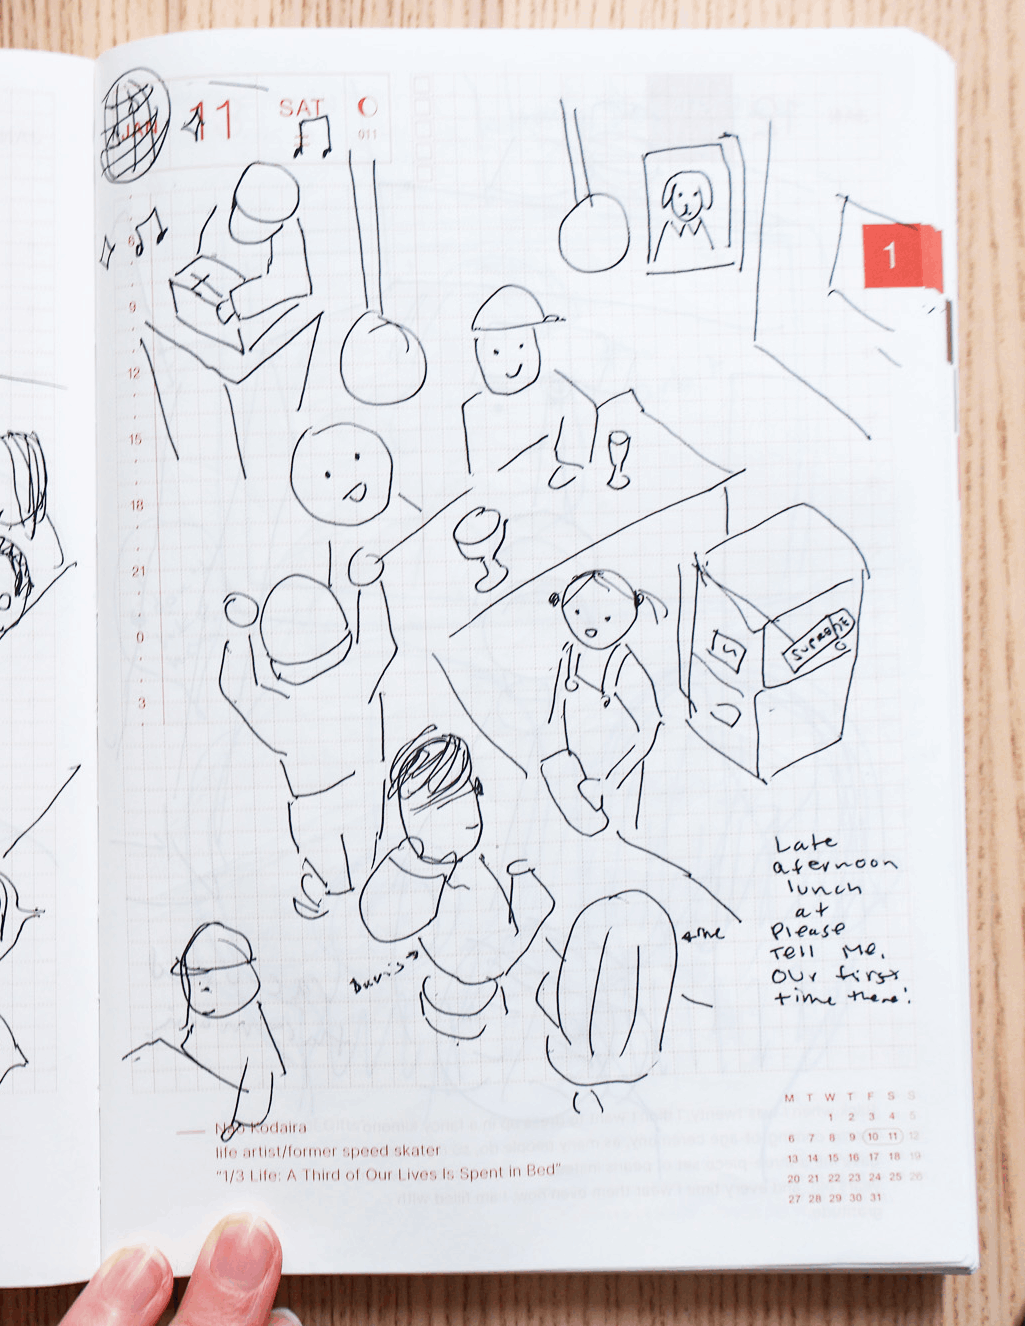 JAN 11 SAT
011
1
6
9
12
15
18
21
0
3
SUPREME
Late
afernoon
lunch
at
Please
Tell Me.
Our first
time there!
me
Nao Kodaira
life artist/former speed skater
"1/3 Life: A Third of Our Lives Is Spent in Bed"
M T W T F S S
1 2 3 4 5
6 7 8 9 10 11 12
13 14 15 16 17 18 19
20 21 22 23 24 25 26
27 28 29 30 31